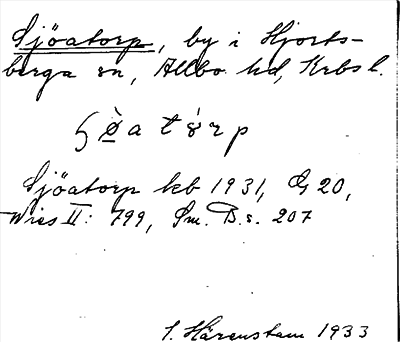 Sjöatorp, by i Hjorts-
berga sn, Allbo hd, Krbs l.
ʂø̀at ór̀p
Sjöatorp kb 1931, G 20,
Wies II: 799, Sm. B. s. 207
I. Härenstam 1933